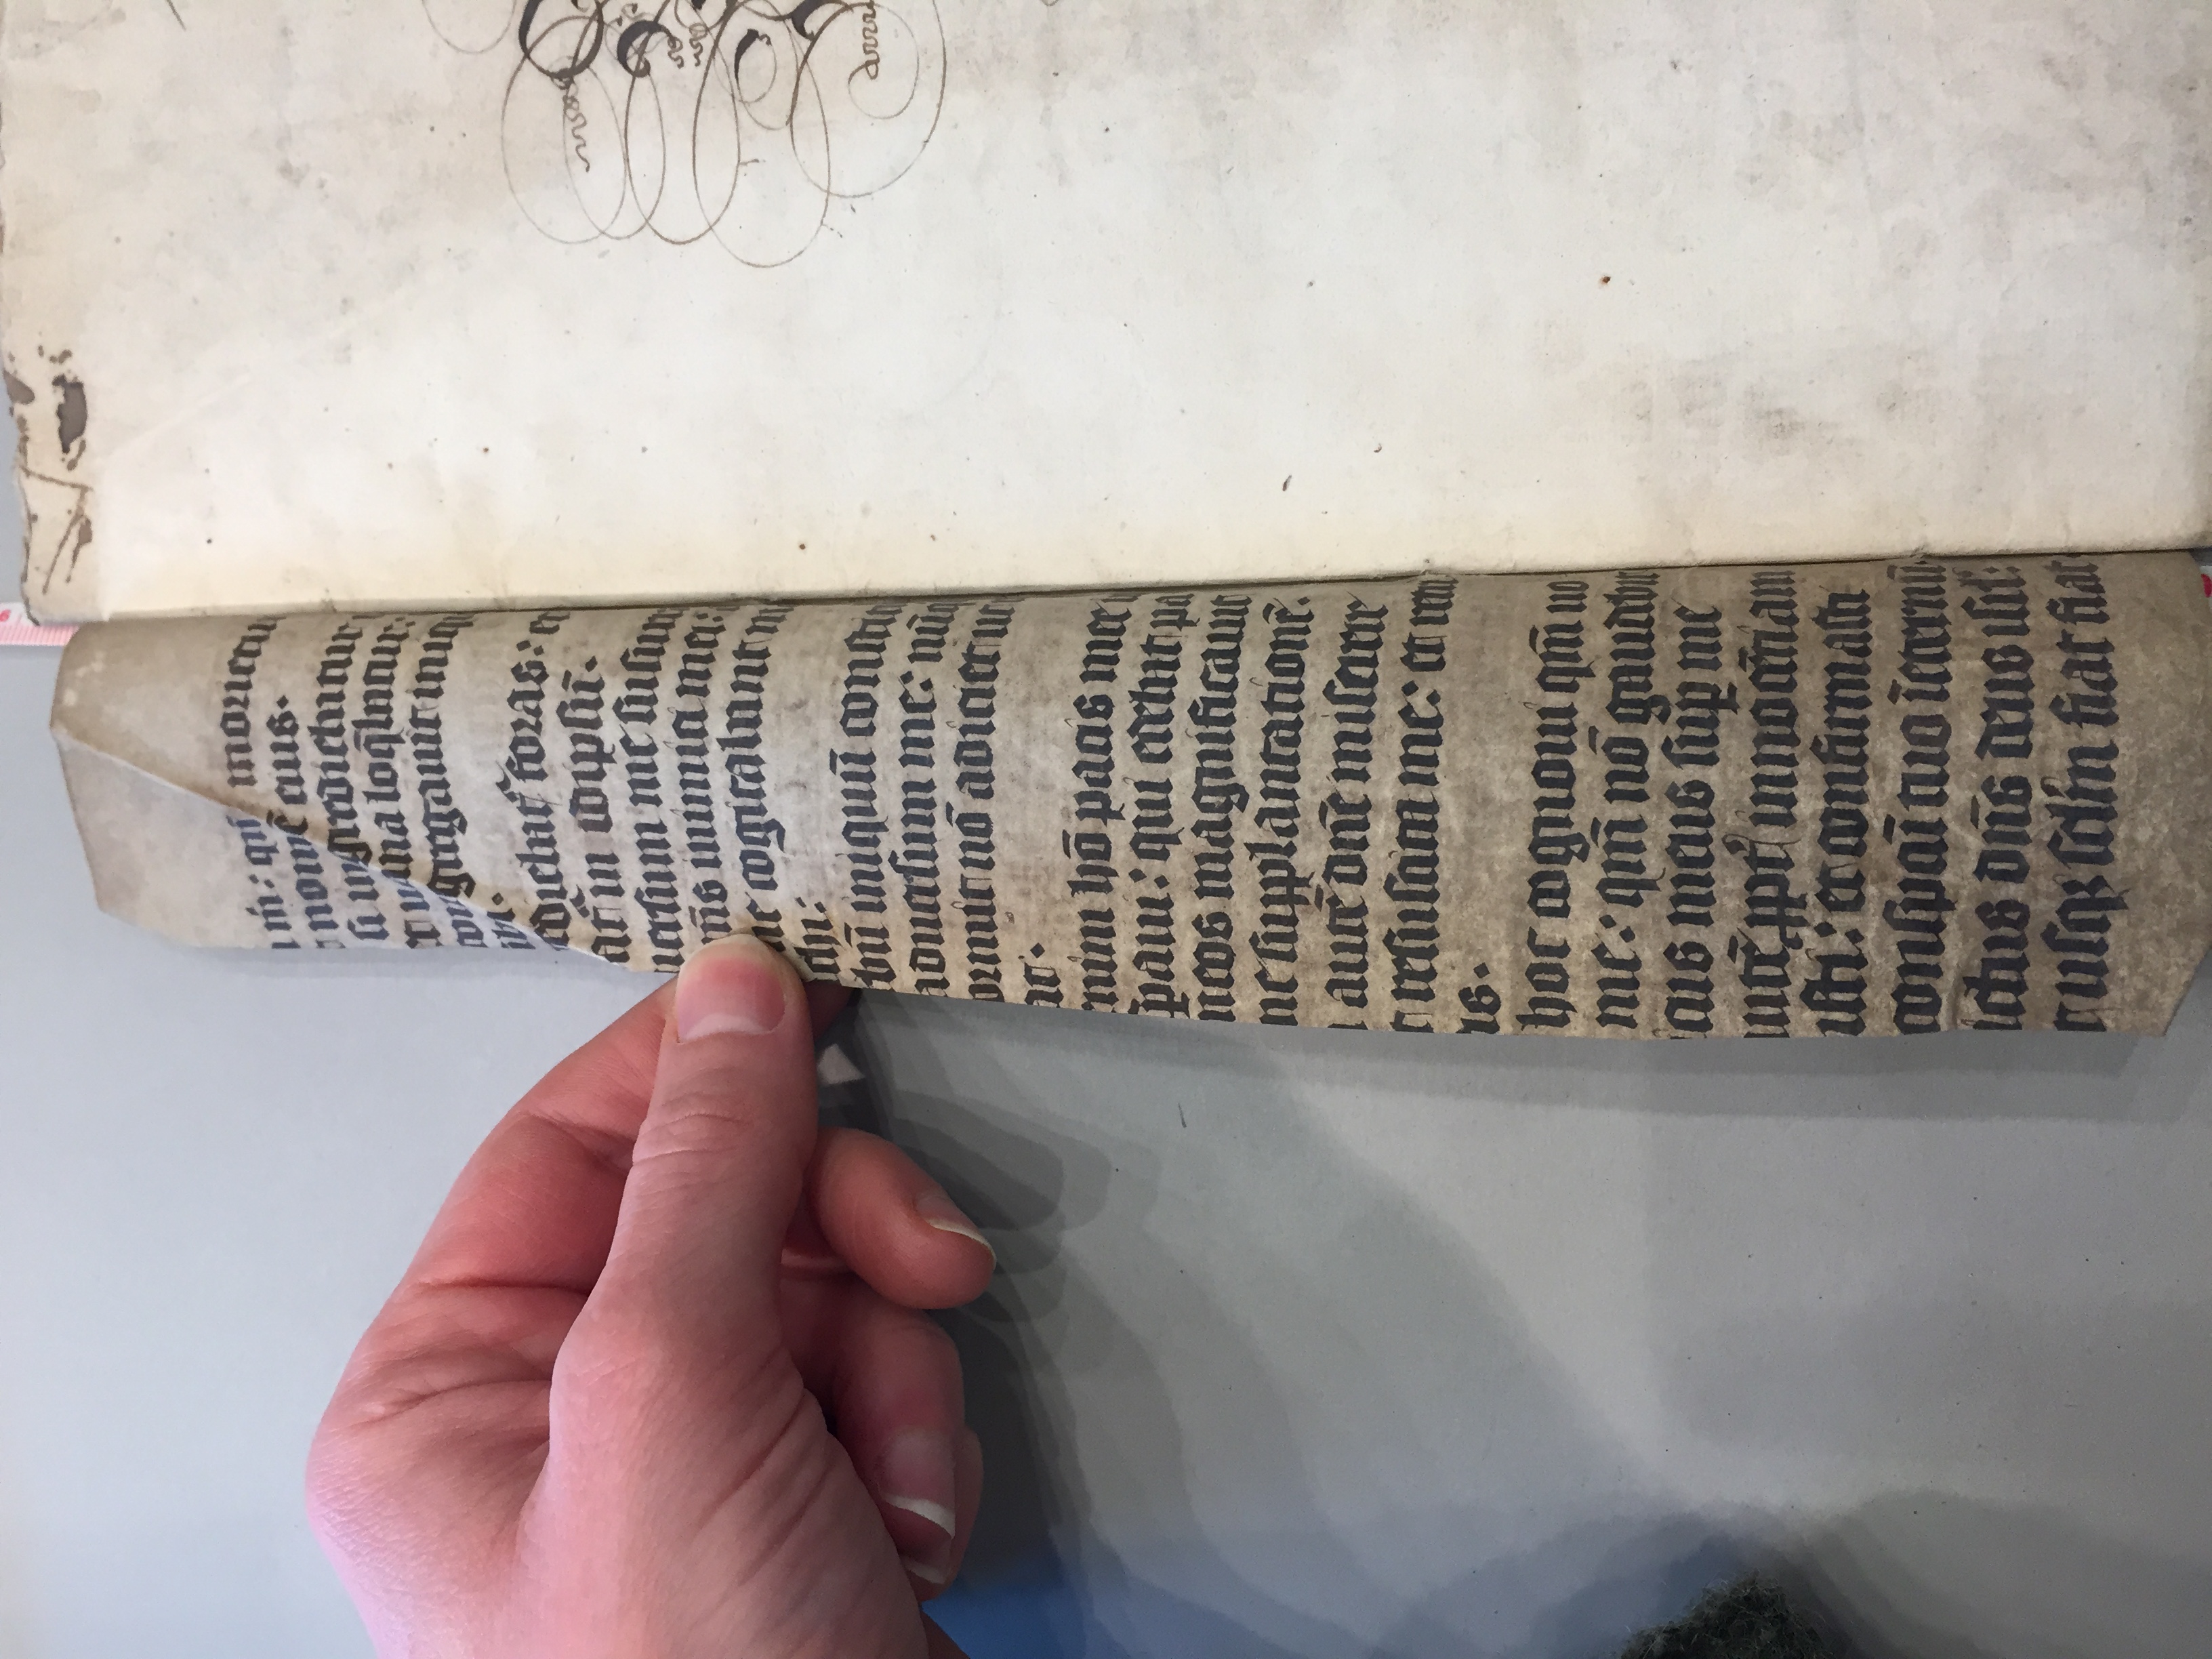 m̄: qn̄ morietur
nomē eius.
si ingrediebatur
et uana loq̄batur:
congregauit iniq
ibi.
ediebat᷑ foras: et
at᷑ in idip̄sū.
uersum me susurr
om̄s inimici mei:
me cogitabant m
ichi:
rbū iniquū constit
aduersum me: nūq
ormit nō adiciet ut
at.
enim hō pacis mee
sp̄aui: qui edebat pa
meos magnificauit
me supplantationē.
autē dn̄e miserere
t resuscita me: et retri
is.
hoc cognoui qm̄ uo
me: qm̄ nō gaudebit
icus meus sup̱ me
autē ꝓpt᷑ innocētiam
isti: et confirmasti
conspc̄ū tuo ī eternū.
ictus dn̄s deus isrl̄:
t usqꝫ sclm̄ fiat fiat